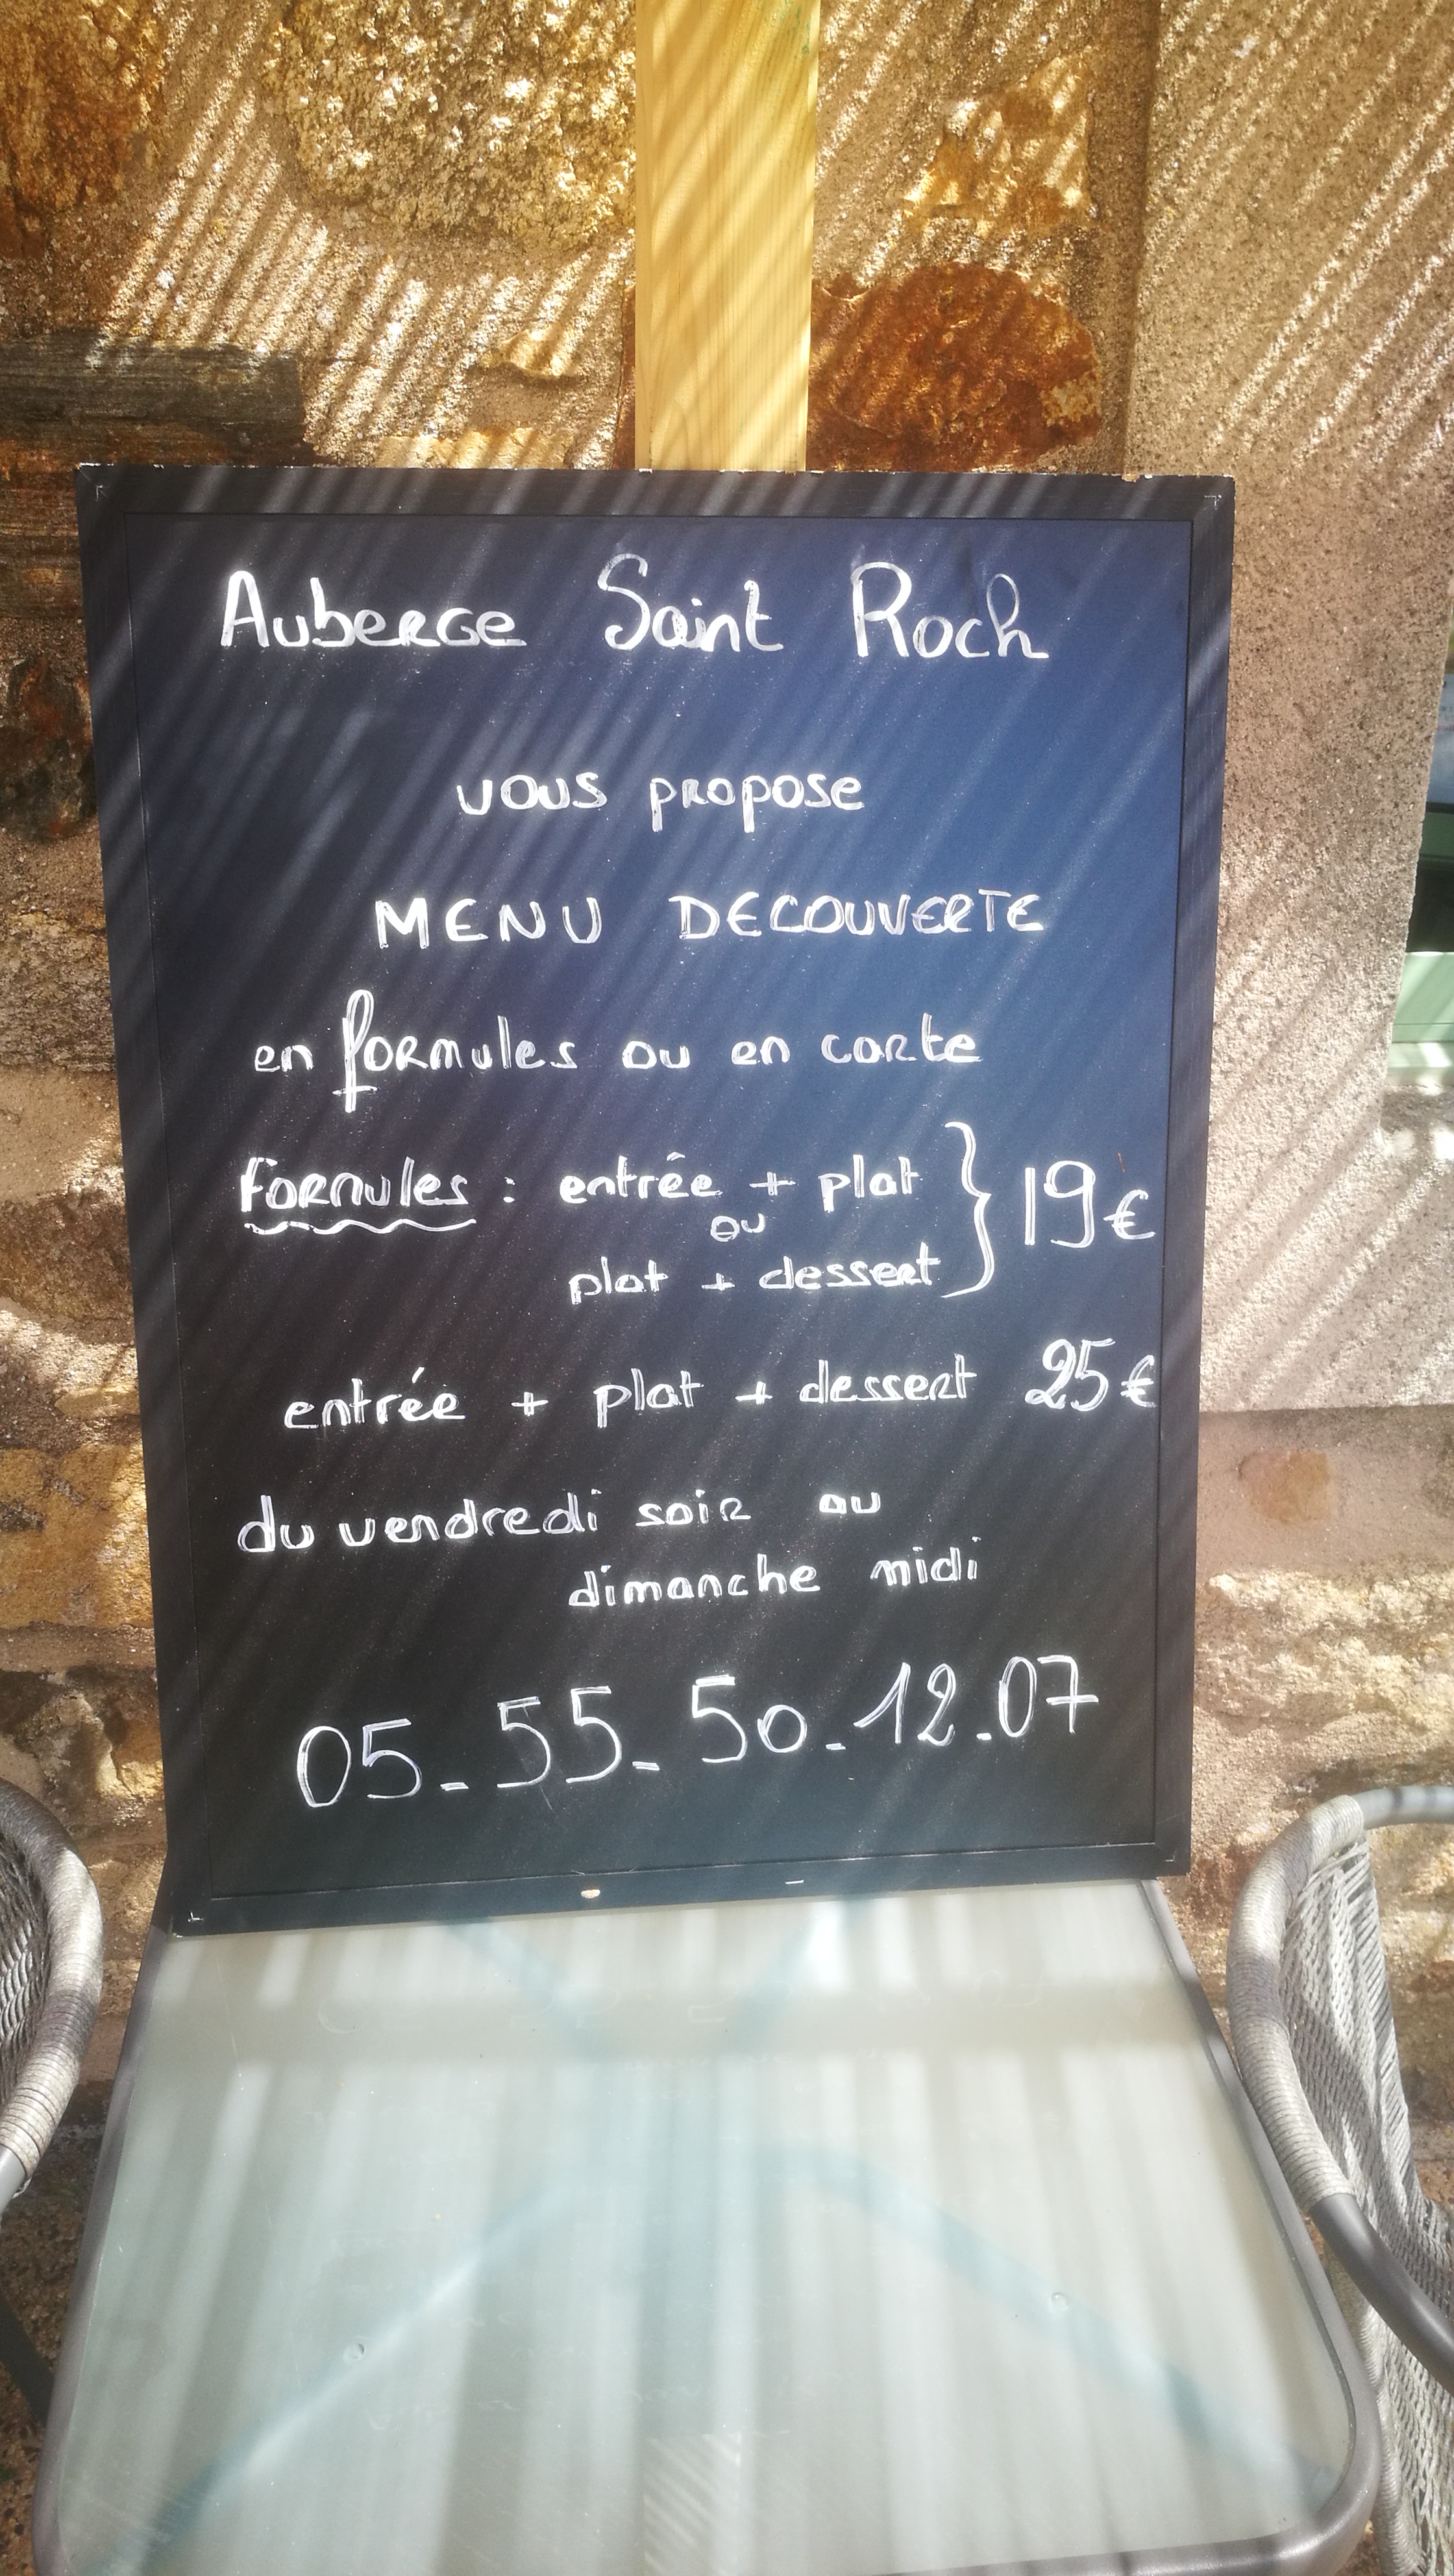 Auberge Saint Roch
vous propose
MENU DECOUVERTE
en formules ou en carte
Formules : entrée + plat } 19€
ou
plat + dessert
entrée + plat + dessert 25€
du vendredi soir au
dimanche midi
05_55_50_12.07